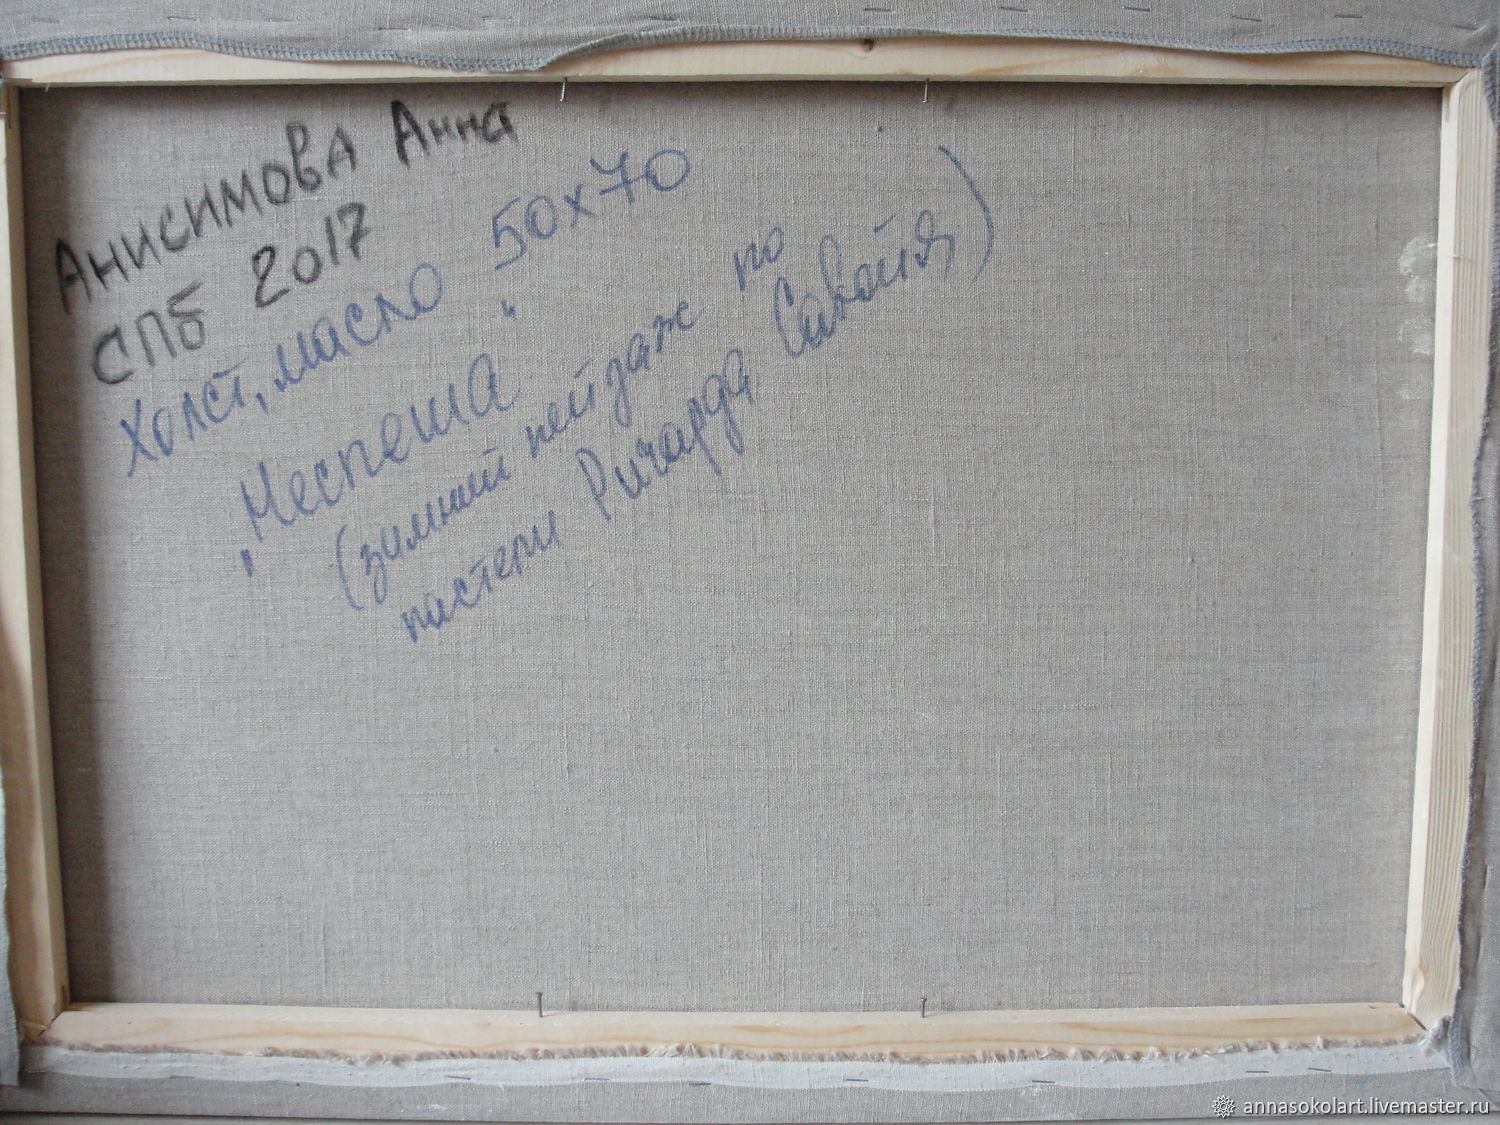 Анисимова Анна
СПб 2017
Холст, масло 50x70
„Неспеша"
(зимний пейзаж по
пастели Ричарда Савойя)
annasokolart.livemaster.ru